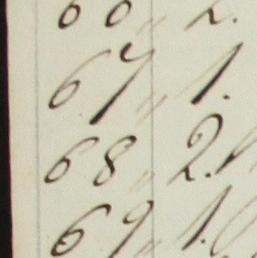 66 " 2.
67 " 1.
68 " 2.
69 " 1.